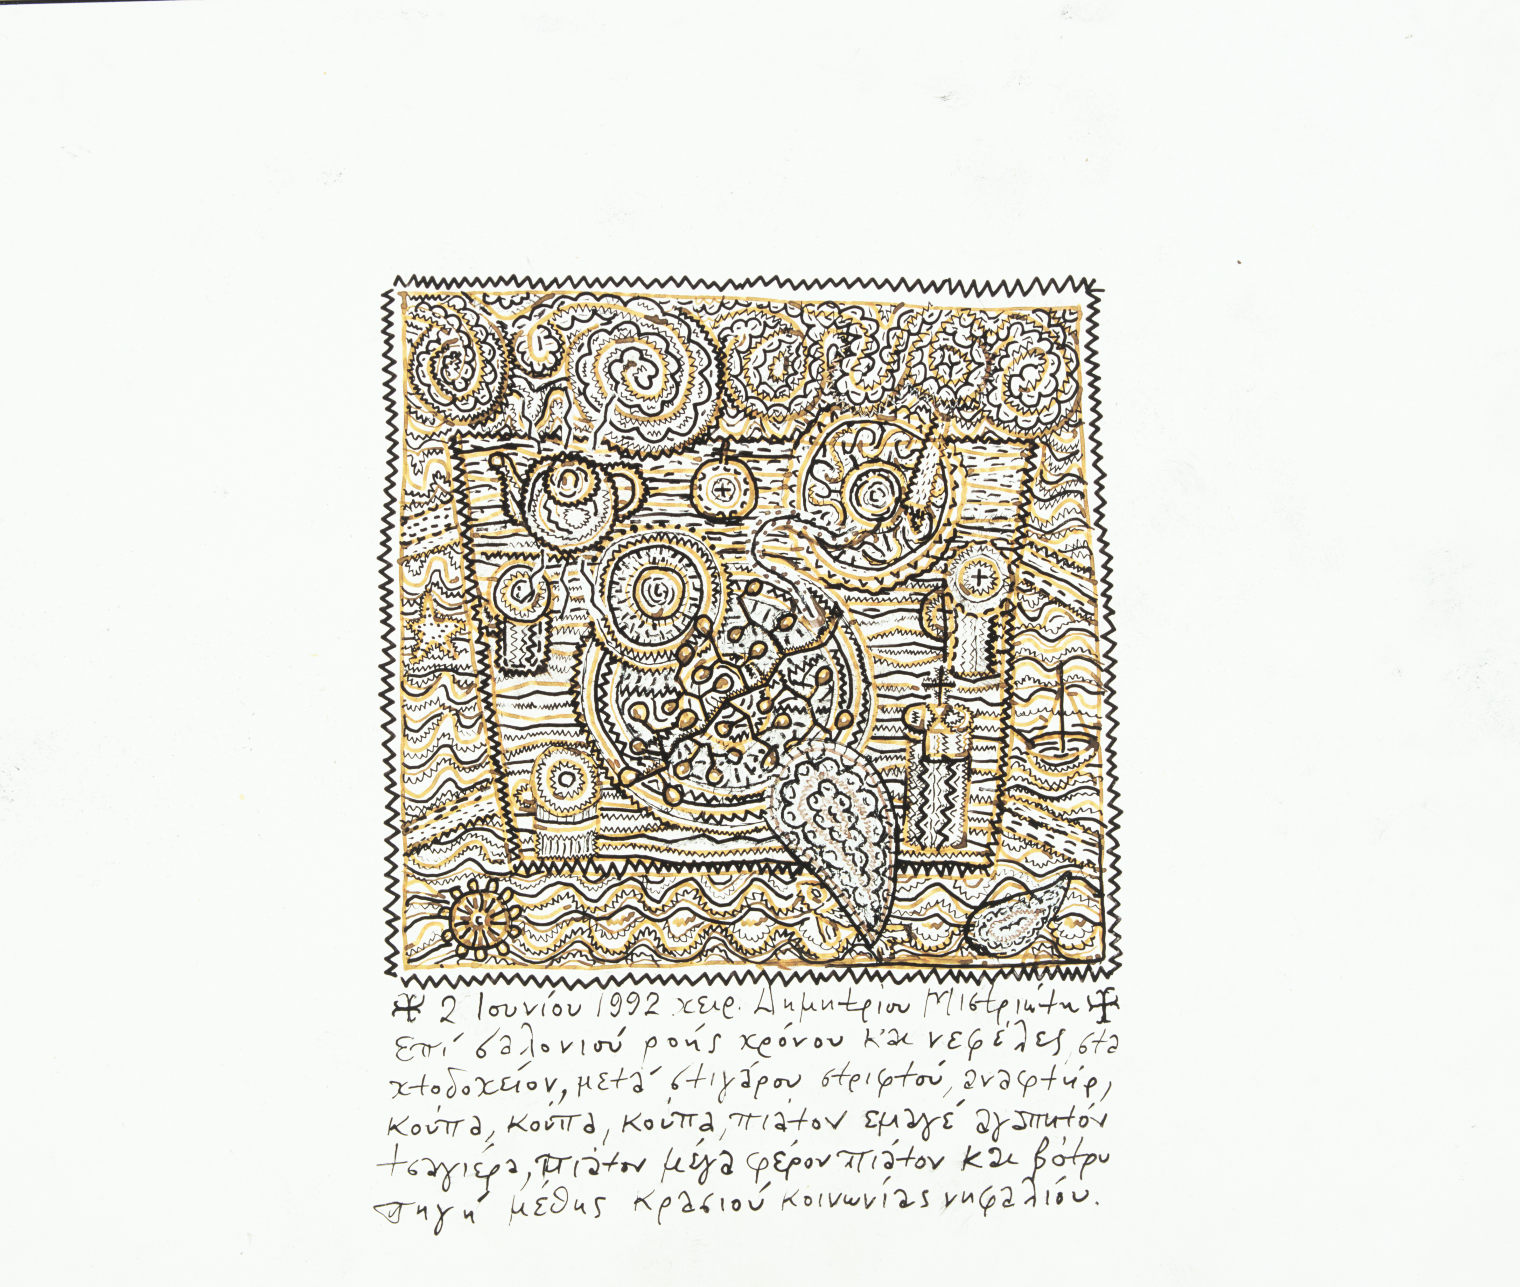 ✠ 2 Ιουνίου 1992 χειρ. Δημητρίου Μιστριώτη ✠
Επί σαλονιού ροής χρόνου και νεφέλες στα
χτοδοχείον, μετά στιγάρου στριφτού, αναφτήρ,
κούπα, κούπα, κούπα, πιάτον εμαγέ αγαπητόν
τσαγιέρα, πιάτον μέγα φέρον πιάτον και βότρυ
πηγή μέθης κρασιού κοινωνίας νηφαλιόυ.